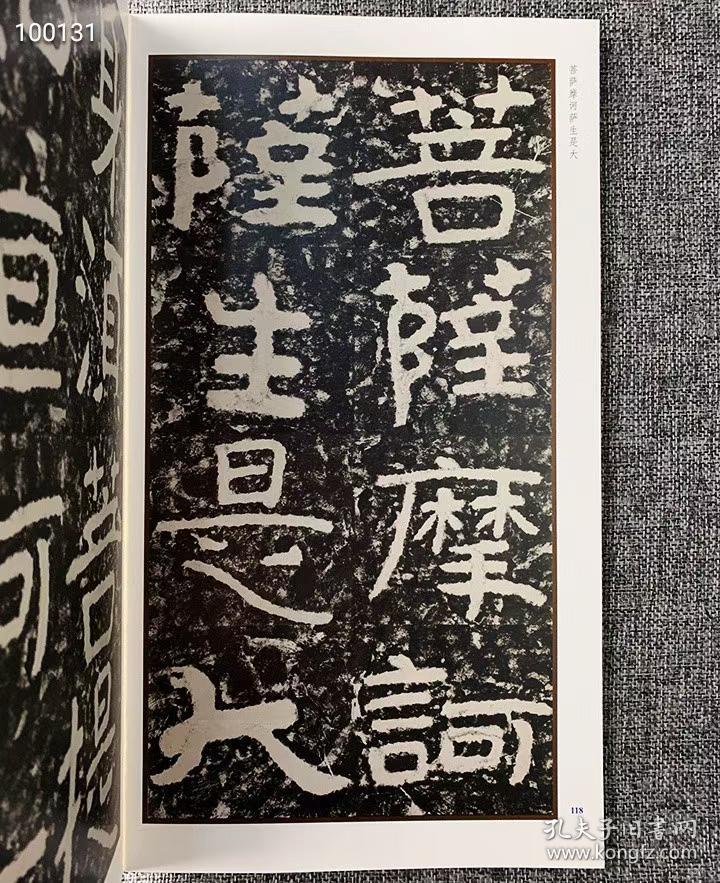 100131
菩薩摩訶
薩生是大
菩萨摩诃萨生是大
118
孔夫子旧书网
www.kongfz.com